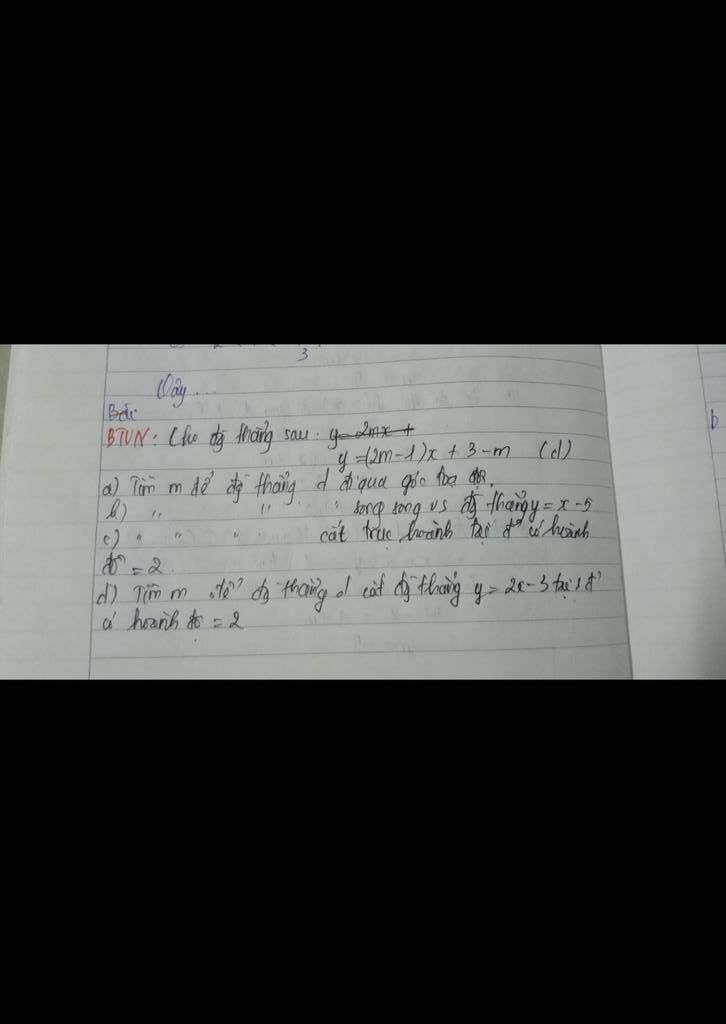 3
Vậy ...
Bài
BTVN: Cho đg thẳng sau: y=2mx+
y=(2m-1)x + 3-m (d)
a) Tìm m để đg thẳng d đi qua gốc toạ độ.
b) " " " song song vs đg thẳng y = x - 5
c) " " " " cắt trục hoành tại đ' có hoành
độ = 2
d) Tìm m để đg thẳng d cắt đg thẳng y = 2x - 3 tại 1 đ'
có hoành độ = 2
b